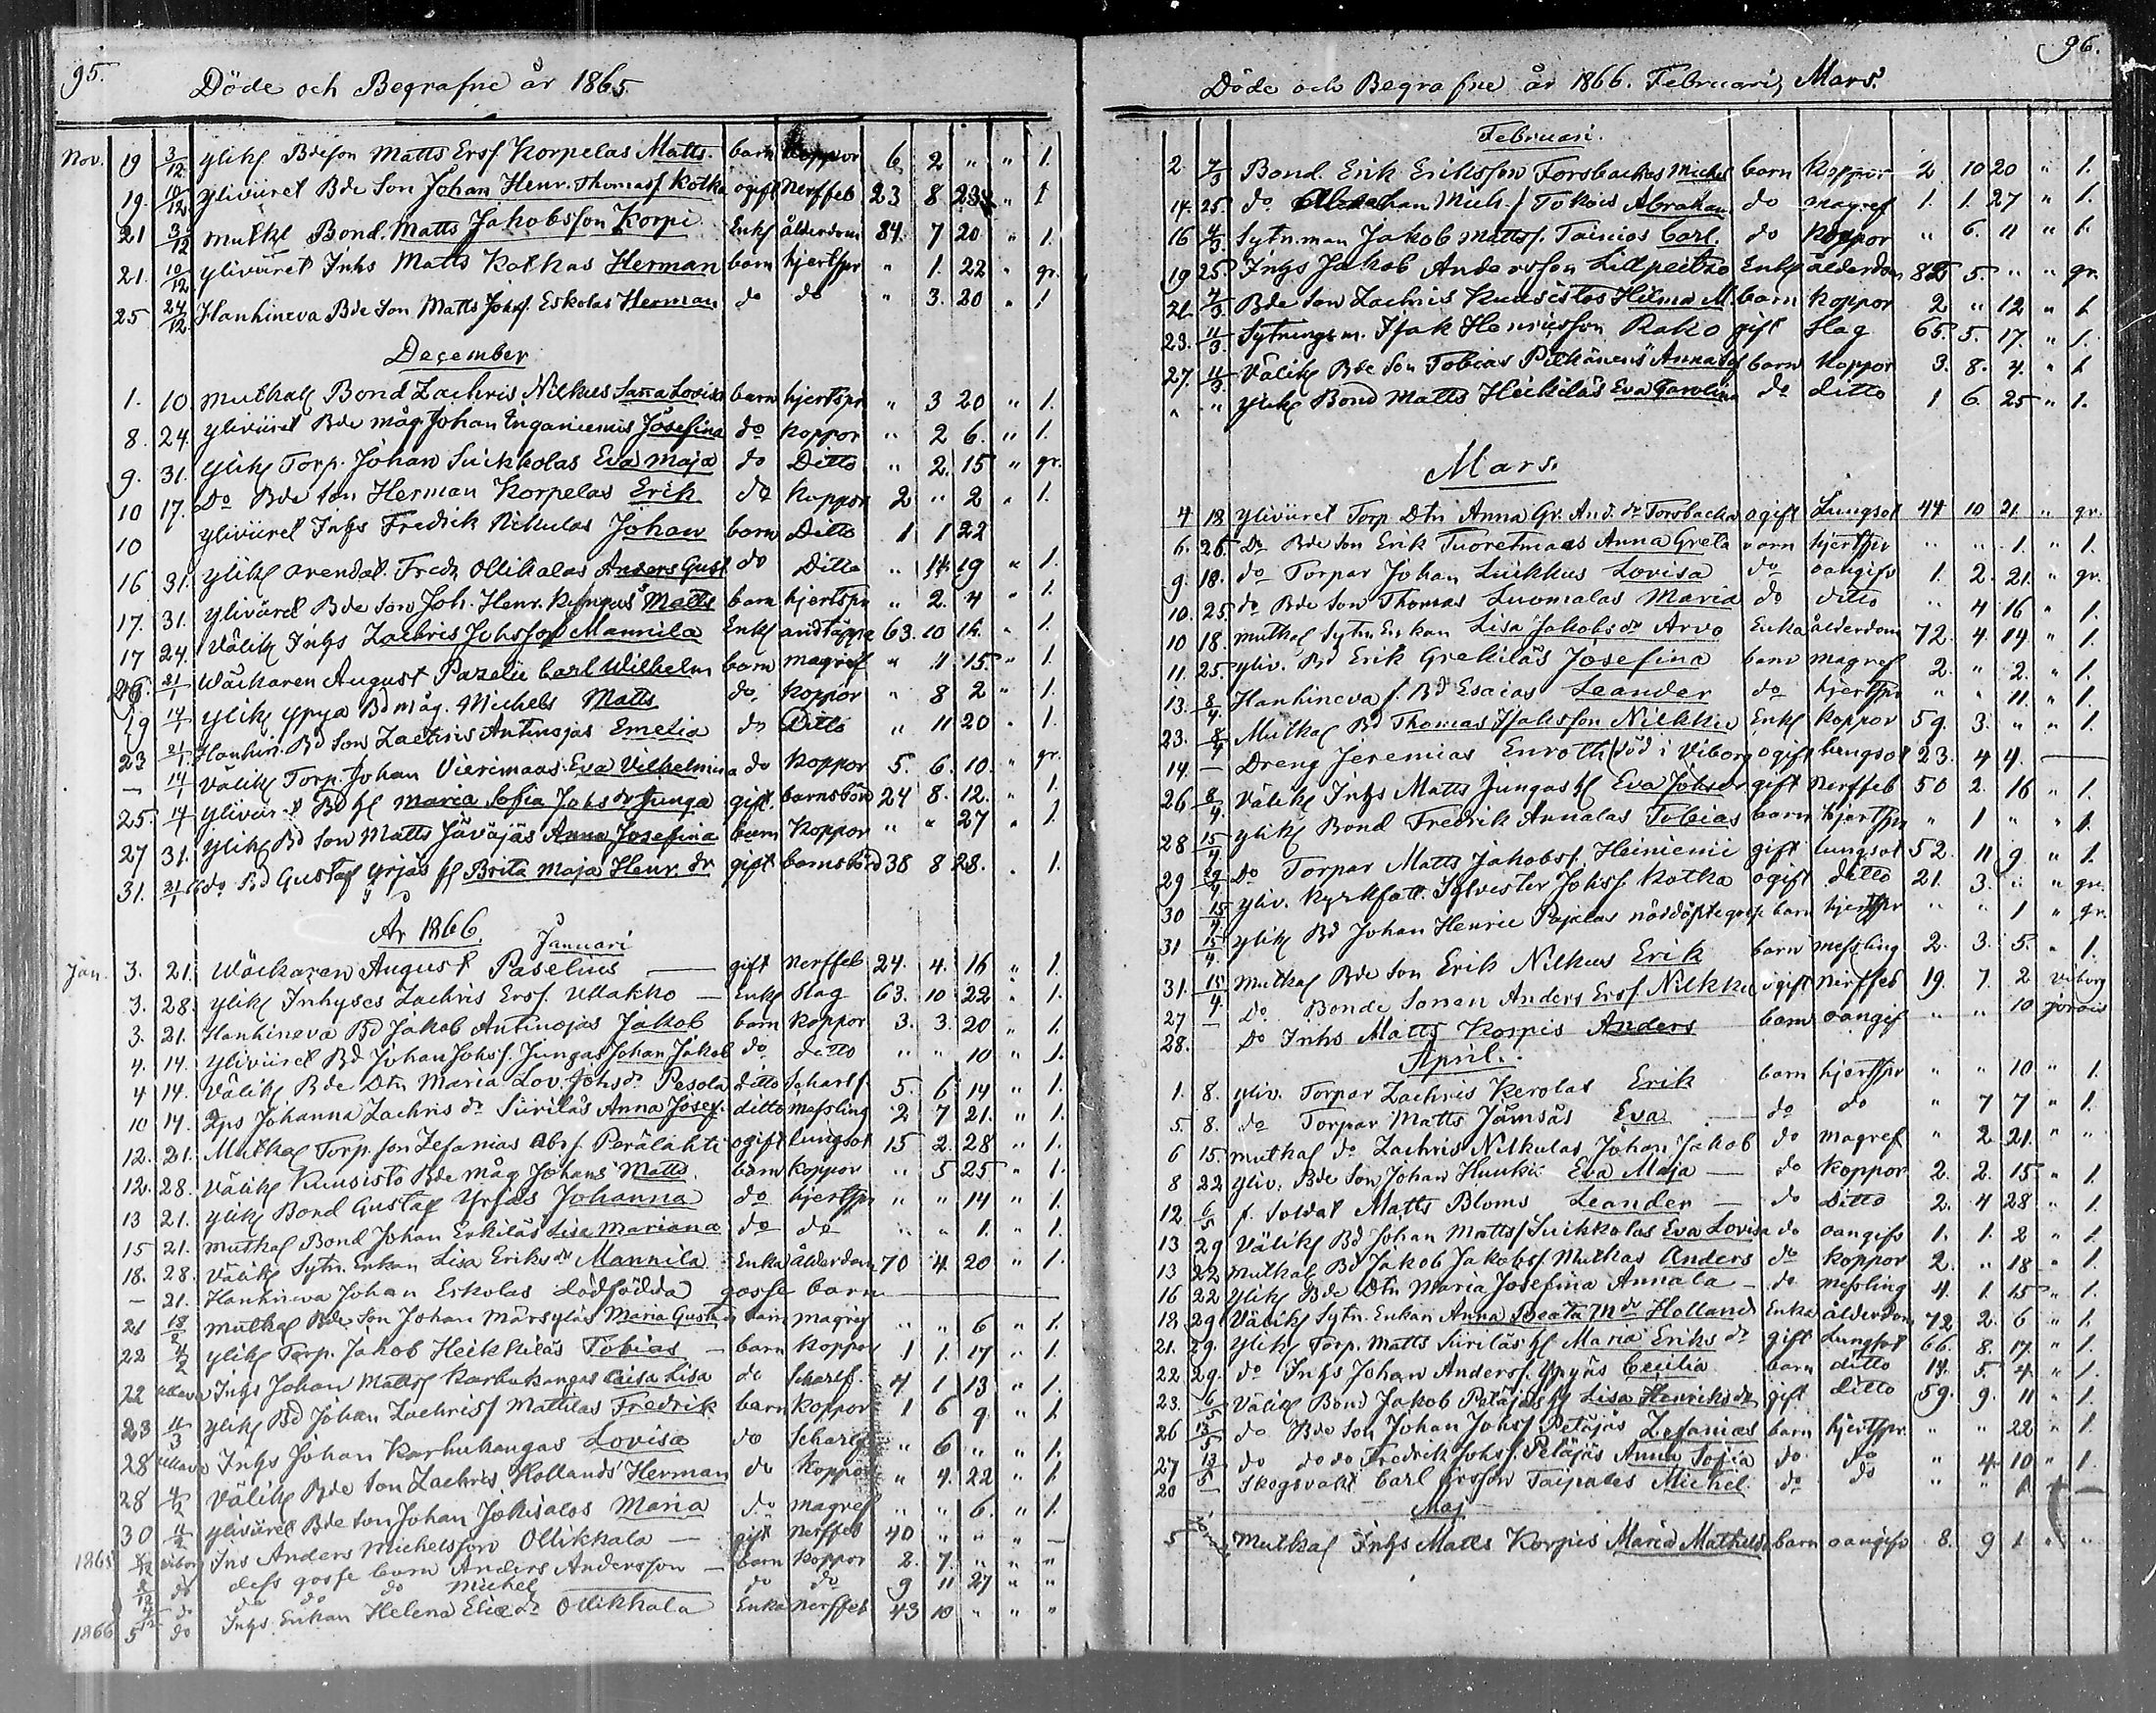 95.
Döde och Begrafne år 1865
Nov. 19 3/12 ylik Bdeson Matts Ersf Korpelas Matts. barn koppor 6 2 " " 1.
19. 10/12 yliviiret Bde Son Johan Henr. Thomasf Kotka ogift Nerffeb 23 8 23 " 1
21 3/12 mutkl Bond. Matts Jakobsson Korpi Enkl ålderdom 84. 7 20 " 1.
21. 10/12 yliviiret Inhs Matts Kotkas Herman barn hjertspr " 1. 22 " gr.
25 24/12 Hanhineva Bde Son Matts Johsf. Eskolas Herman do do " 3. 20 " 1
December
1. 10 mutkal Bond Zachris Nilkus Sanna Lovisa barn hjertspr " 3 20 " 1.
8. 24. yliviiret Bde måg Johan Josefina do koppor " 2 6. " 1.
9. 31. ylik Torp. Johan Suikkolas Eva Maja do Ditto " 2. 15 " gr.
10 17. Do Bde son Herman Korpelas Erik do koppor 2 " 2 " 1.
10 yliviiret Inhs Fredrik Nikulas Johan barn Ditto 1 1 22
16 31. ylik arendat. Fredr. Ollikalas Anders Gust do Ditto " 19 " 1.
17. 31. yliviiret Bde Son Joh. Henr. Matts barn hjertspr " 2. 4 " 1.
17 24. Välik Inhs Zachris Johsson Mannila Enkl andtäppa 63. 10 " 1.
21/1 Wäckaren August Pazelii Carl Wilhelm barn magref " 11 15. " 1.
19 14/1 ylik ypyä Bd måg. Michels Matts do. koppor " 8 2 " 1.
23 21/1 Hanhin. Bd Sons Zachris Antinojas Emelia do Ditto " 11 20 " 1.
— 14/1 Välik Torp. Johan Vierimaas Eva Vilhelmina do koppor 5. 6. 10. " gr.
25. 14/1 Bd hl Maria Sofia Johs dr Junga gift barnsbörd 24 8. 12. " 1.
27 31. ylik Bd Son Matts Jäväjäs Anna Josefina barn koppor " " 27 " 1
31. 21/1 do Bd Gustaf Yrjäs hl Brita Maja Henr. dr gift barnsbörd 38 8 28. " 1.
År 1866.
Januari
Jan. 3. 21. Wäckaren August Paselius — gift Nerffeb 24. 4. 16 " 1.
3. 28. ylik Inhyses Zachris Ersf. Ullakko — Enkl Slag 63. 10 22 " 1.
3. 21. Hanhineva Bd Jakob Antinojas Jakob barn koppor 3. 3. 20 " 1.
4. 14. yliviiret Bd Johan Johsf. Jungas Johan Jakob do ditto " " 10 " 1.
4 14. Välik Bde Dtr Maria Lov. Johs dr Pesola ditto Scharlf. 5. 6 14 " 1.
10 14. Johanna Zachris dr Siirilas Anna Josef. ditto messling 2 7 21. " 1.
12. 21. Mutkal Torp. son Zefanias Abrf. Perälahti ogift lungsot 15 2. 28 " 1.
12. 28. Välik Kuusisto Bde måg Johans Matts barn koppor " 5 25 " 1.
13 21. ylik Bond Gustaf Yrjäs Johanna do hjertspr " " 14 " 1.
15 21. mutkal Bond Johan Erkiläs Lisa Mariana do do " " 1. " 1.
18. 28. Välik Sytn. Enkan Lisa Eriks dr Mannila Enka ålderdom 70 4. 20 " 1.
— 21. Hanhineva Johan Eskolas dödfödda gosse barn
21 18/2 mutkal Bde Son Johan Märsyläs Maria Gusta barn magref " " 6 " 1.
22 4/2 ylik Torp. Jakob Heikkiläs Tobias — barn koppor 1 1. 17 " 1.
22 Inhs Johan Mattsf Karhukangas Caisa Lisa do Scharlf. 4 1 13 " 1.
23 11/3 ylik Bd Johan Zachrisf Mattilas Fredrik barn koppor 1 6 9 " 1.
28 Inhs Johan Karhukangas Lovisa do Scharlf " 6 " " 1.
28 4/2 Välik Bde Son Zachris Hollands Herman do koppor " 4. 22 " 1
30 11/2 yliviiret Bde son Johan Jokisalos Maria do magref " " 6. " 1.
1865 Viborg Ins Anders Michelsson Ollikkala — gift Nerffeb 40 " " " —
do dess gosse barn Anders Andersson — barn koppor 2. 7. " " "
do do do Michel do do 9 11 27 " "
1866 5 do Inhs Enkan Helena Elied. Ollikkala Enka Nerffeb 43 10 " " "
96.
Döde och Begrafne år 1866. Februari, Mars.
Februari.
2 4/3 Bond. Erik Eriksson Forsbackas Michel barn koppor 2 10 20 " 1.
14. 25. do Tokois Abraham do magref 1. 1. 27 " 1.
16 4/3 Sytn.man Jakob Mattsf. Tainios Carl. do koppor " 6. 11 " 1.
19 25 Inhs Jakob Andersson Lillpeitso Enkl ålderdom 82 5. " " gr.
21. 4/3 Bde Son Zachris Kuusistos Hilma M. barn koppor 2 " 12 " 1
23. 11/3 Sytningsm. Isak Henricsson Rako gift Slag 65. 5. 17. " 1.
27. 11/3 Välik Bde Son Tobias Pitkänens Anna Sof barn koppor 3. 8. 4. " 1
" " ylik Bond Matts Heikiläs Eva Carolina do ditto 1 6. 25 " 1.
Mars.
4 18 yliviiret Torp Dtr Anna Gr. And. dr Forsbacka ogift Lungsot 44 10 21. " gr.
6. 25. Do Bde Son Erik Tuoretmaas Anna Greta barn hjertspr " " 1. " 1.
9. 18. do Torpar Johan Luikkus Lovisa do oangifv 1. 2. 21. " gr.
10. 25. do Bde Son Thomas Luomalas Maria do ditto " 4 16 " 1.
10 18. mutkal Sytn Enkan Lisa Jakobs dr Arvo Enka ålderdom 72. 4. 14. " 1.
11. 25. yliv. Bd Erik Grekiläs Josefina barn magref 2. " 2. " 1.
13. 8/4. Hanhineva f. Bd Esaias Leander do hjertspr " " 11. " 1.
23. 8/4 Mutkal Bd Thomas Isaksson Nilkku Enkl koppor 59 3. " " 1.
14. — Dreng Jeremias Enroth död i Viborg ogift lungsot 23. 4 4. —
26 8/4. Välik Inhs Matts Jungas hl Eva Johsdr gift Nerffeb 50 2. 16 " 1.
28 15/4 ylik Bond Fredrik Annalas Tobias barn hjertspr " 1 " " 1.
29 29/4 Do Torpar Matts Jakobsf. Heiniemi gift lungsot 52. 11 9. " 1.
30 15/4 yliv. Kyrkfatt. Sylvester Johsf. Kotka ogift ditto 21. 3. " " gr.
31 15/4. ylik Bd Johan Henric Pajalas nöddöpte gosse barn hjertspr " " 1 " gr.
31. 15/4. mutkal Bde Son Erik Nilkus Erik barn messling 2. 3. 5. " 1.
27 — Do Bonde Sonen Anders Ersf. Nilkku ogift Nerffeb 19. 7. 2 Viborg
28. Do Inhs Matts Korpis Anders barn oangif " " 10 Jorois
April.
1. 8. yliv. Torpar Zachris Kerolas Erik barn hjertspr " " 10 " 1.
5. 8. do Torpar Matts Jämsäs Eva — do do " 7 7 " 1.
6 15. mutkal do Zachris Nilkulas Johan Jakob do magref " 2 21. " "
8 22 yliv. Bde Son Johan Huukki Eva Maja — do koppor 2. 2. 15 " 1.
12 6/5 f. Soldat Matts Bloms Leander — do Ditto 2. 4 28 " 1.
13 29 Välik Bd Johan Mattsf Suikkolas Eva Lovisa do oangifv 1. 1. 2 " 1.
13 22 mutkal Bd Jakob Jakobsf. Muthas Anders do koppor 2. " 18 " 1.
16 22 ylik Bde Dtr Maria Josefina Annala — do messling 4. 1. 15 " 1.
18 29 Välik Sytn. Enkan Anna Beata M dr Holland Enka ålderdom 72. 2. 6 " 1.
21. 29. ylik Torp. Matts Siiriläs hl Maria Eriks dr gift Lungsot 66. 8. 17. " 1.
22. 29. do Inhs Johan Andersf. Ypyäs Cecilia barn ditto 14. 5. 4. " 1.
23. 6/5 Välik Bond Jakob Petäjäs hl Lisa Henriks dr gift ditto 59. 9. 11 " 1.
26 13/5 do Bde Son Johan Johsf Petäjäs Zefanias barn hjertspr " " 22 " 1.
27 13/5 do do do Fredrik Johsf. Petäjäs Anna Sofia do do " 4. 10 " 1
20 — Skogsvakt Carl Ersson Taipales Michel do do " " 1. —
Maj
5 Mutkal Inhs Matts Korpis Maria Mathilda barn oangifv 8. 9 1 " "